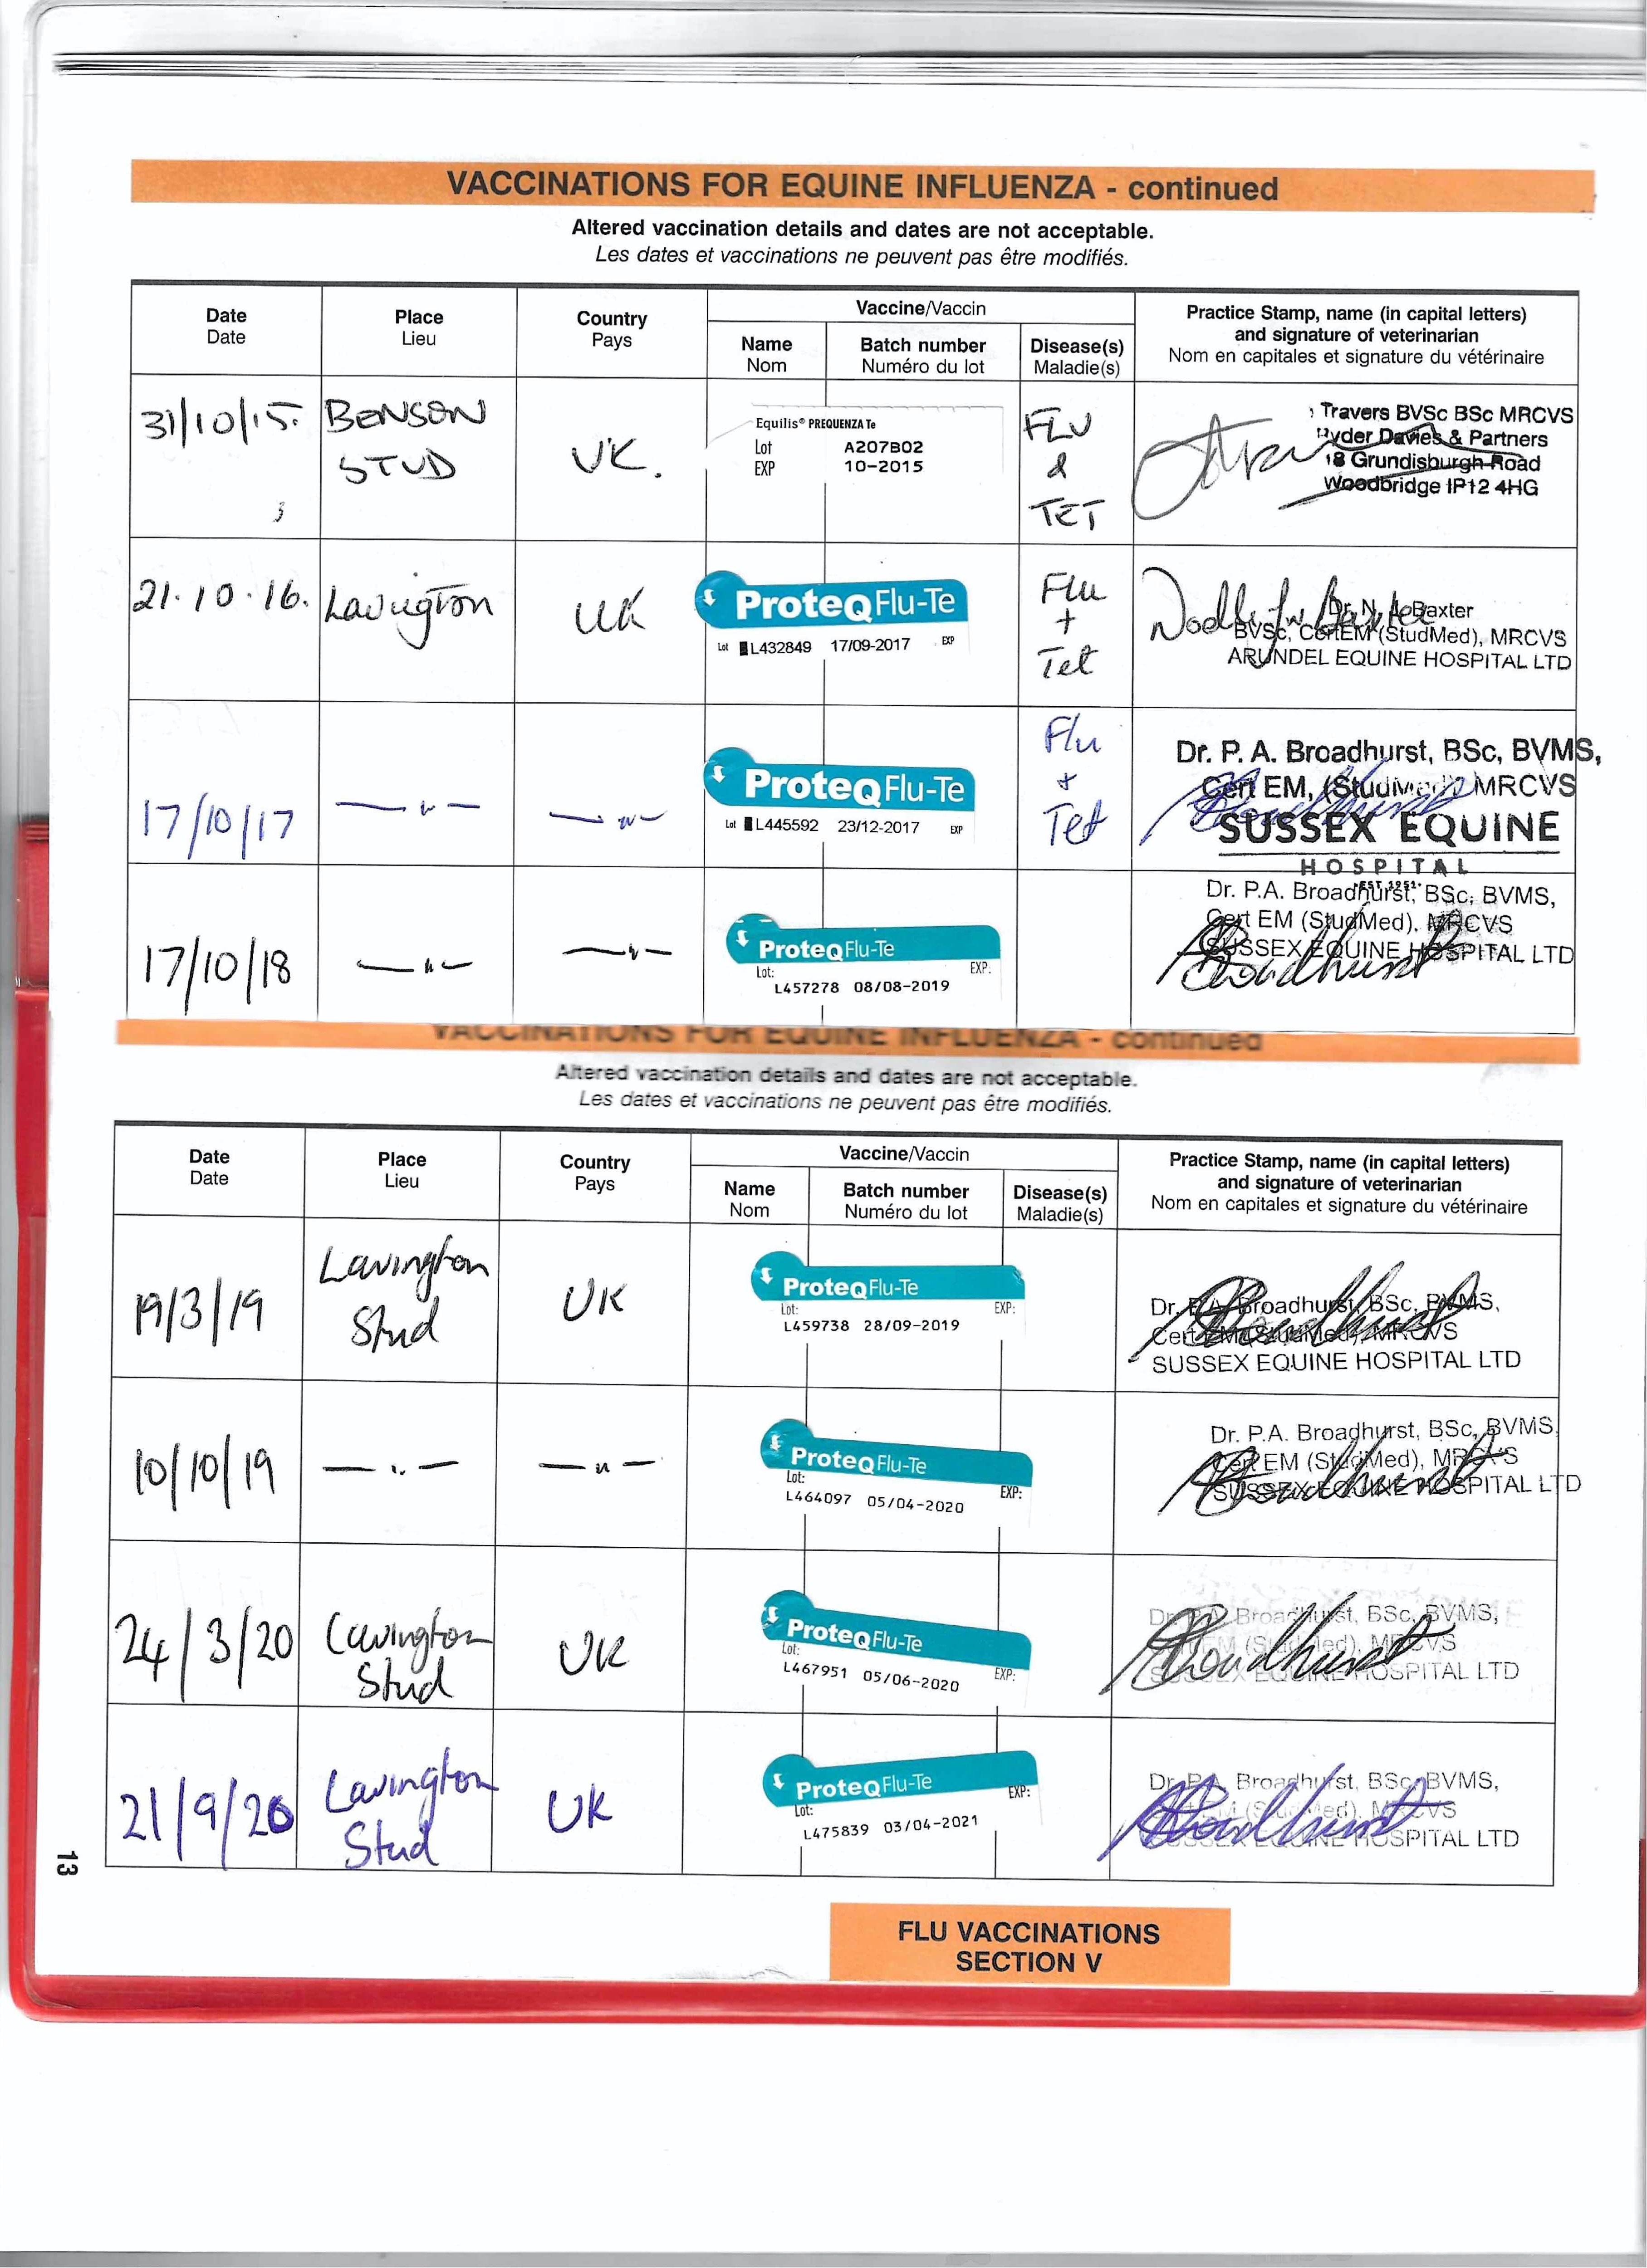 VACCINATIONS FOR EQUINE INFLUENZA - continued
Altered vaccination details and dates are not acceptable.
Les dates et vaccinations ne peuvent pas être modifiés.
Date
Date
Place
Lieu
Country
Pays
Vaccine/Vaccin
Name
Nom
Batch number
Numéro du lot
Disease(s)
Maladie(s)
Practice Stamp, name (in capital letters)
and signature of veterinarian
Nom en capitales et signature du vétérinaire
31/10/15.
BENSON
STUD
UK.
Equilis® PREQUENZA Te
Lot A207B02
EXP 10-2015
FLU
&
TET
Travers BVSc BSc MRCVS
Ryder Davies & Partners
18 Grundisburgh Road
Woodbridge IP12 4HG
21.10.16.
Lavington
UK
ProteqFlu-Te
Lot L432849 17/09-2017 EXP
Flu
+
Tet
Dr. N. Baxter
BVSc, CertEM (StudMed), MRCVS
ARUNDEL EQUINE HOSPITAL LTD
17/10/17
— " —
— " —
ProteqFlu-Te
Lot L445592 23/12-2017 EXP
Flu
+
Tet
Dr. P. A. Broadhurst, BSc, BVMS,
Cert EM, (StudMed) MRCVS
SUSSEX EQUINE
HOSPITAL
EST. 1951
17/10/18
— " —
— " —
ProteqFlu-Te
Lot: EXP.
L457278 08/08-2019
Dr. P.A. Broadhurst, BSc, BVMS,
Cert EM (StudMed), MRCVS
SUSSEX EQUINE HOSPITAL LTD
VACCINATIONS FOR EQUINE INFLUENZA - continued
Altered vaccination details and dates are not acceptable.
Les dates et vaccinations ne peuvent pas être modifiés.
Date
Date
Place
Lieu
Country
Pays
Vaccine/Vaccin
Name
Nom
Batch number
Numéro du lot
Disease(s)
Maladie(s)
Practice Stamp, name (in capital letters)
and signature of veterinarian
Nom en capitales et signature du vétérinaire
19/3/19
Lavington
Stud
UK
ProteqFlu-Te
Lot: EXP:
L459738 28/09-2019
Dr. P.A. Broadhurst, BSc, BVMS,
Cert EM (StudMed), MRCVS
SUSSEX EQUINE HOSPITAL LTD
10/10/19
— " —
— " —
ProteqFlu-Te
Lot: EXP:
L464097 05/04-2020
Dr. P.A. Broadhurst, BSc, BVMS,
Cert EM (StudMed), MRCVS
SUSSEX EQUINE HOSPITAL LTD
24/3/20
Lavington
Stud
UK
ProteqFlu-Te
Lot: EXP:
L467951 05/06-2020
Dr. P.A. Broadhurst, BSc, BVMS,
Cert EM (StudMed), MRCVS
SUSSEX EQUINE HOSPITAL LTD
21/9/20
Lavington
Stud
UK
ProteqFlu-Te
Lot: EXP:
L475839 03/04-2021
Dr. P.A. Broadhurst, BSc, BVMS,
Cert EM (StudMed), MRCVS
SUSSEX EQUINE HOSPITAL LTD
13
FLU VACCINATIONS
SECTION V